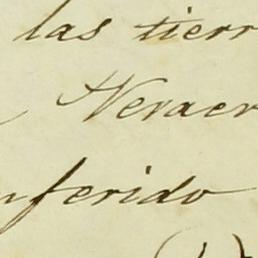 las tierr
Veracr
nferido